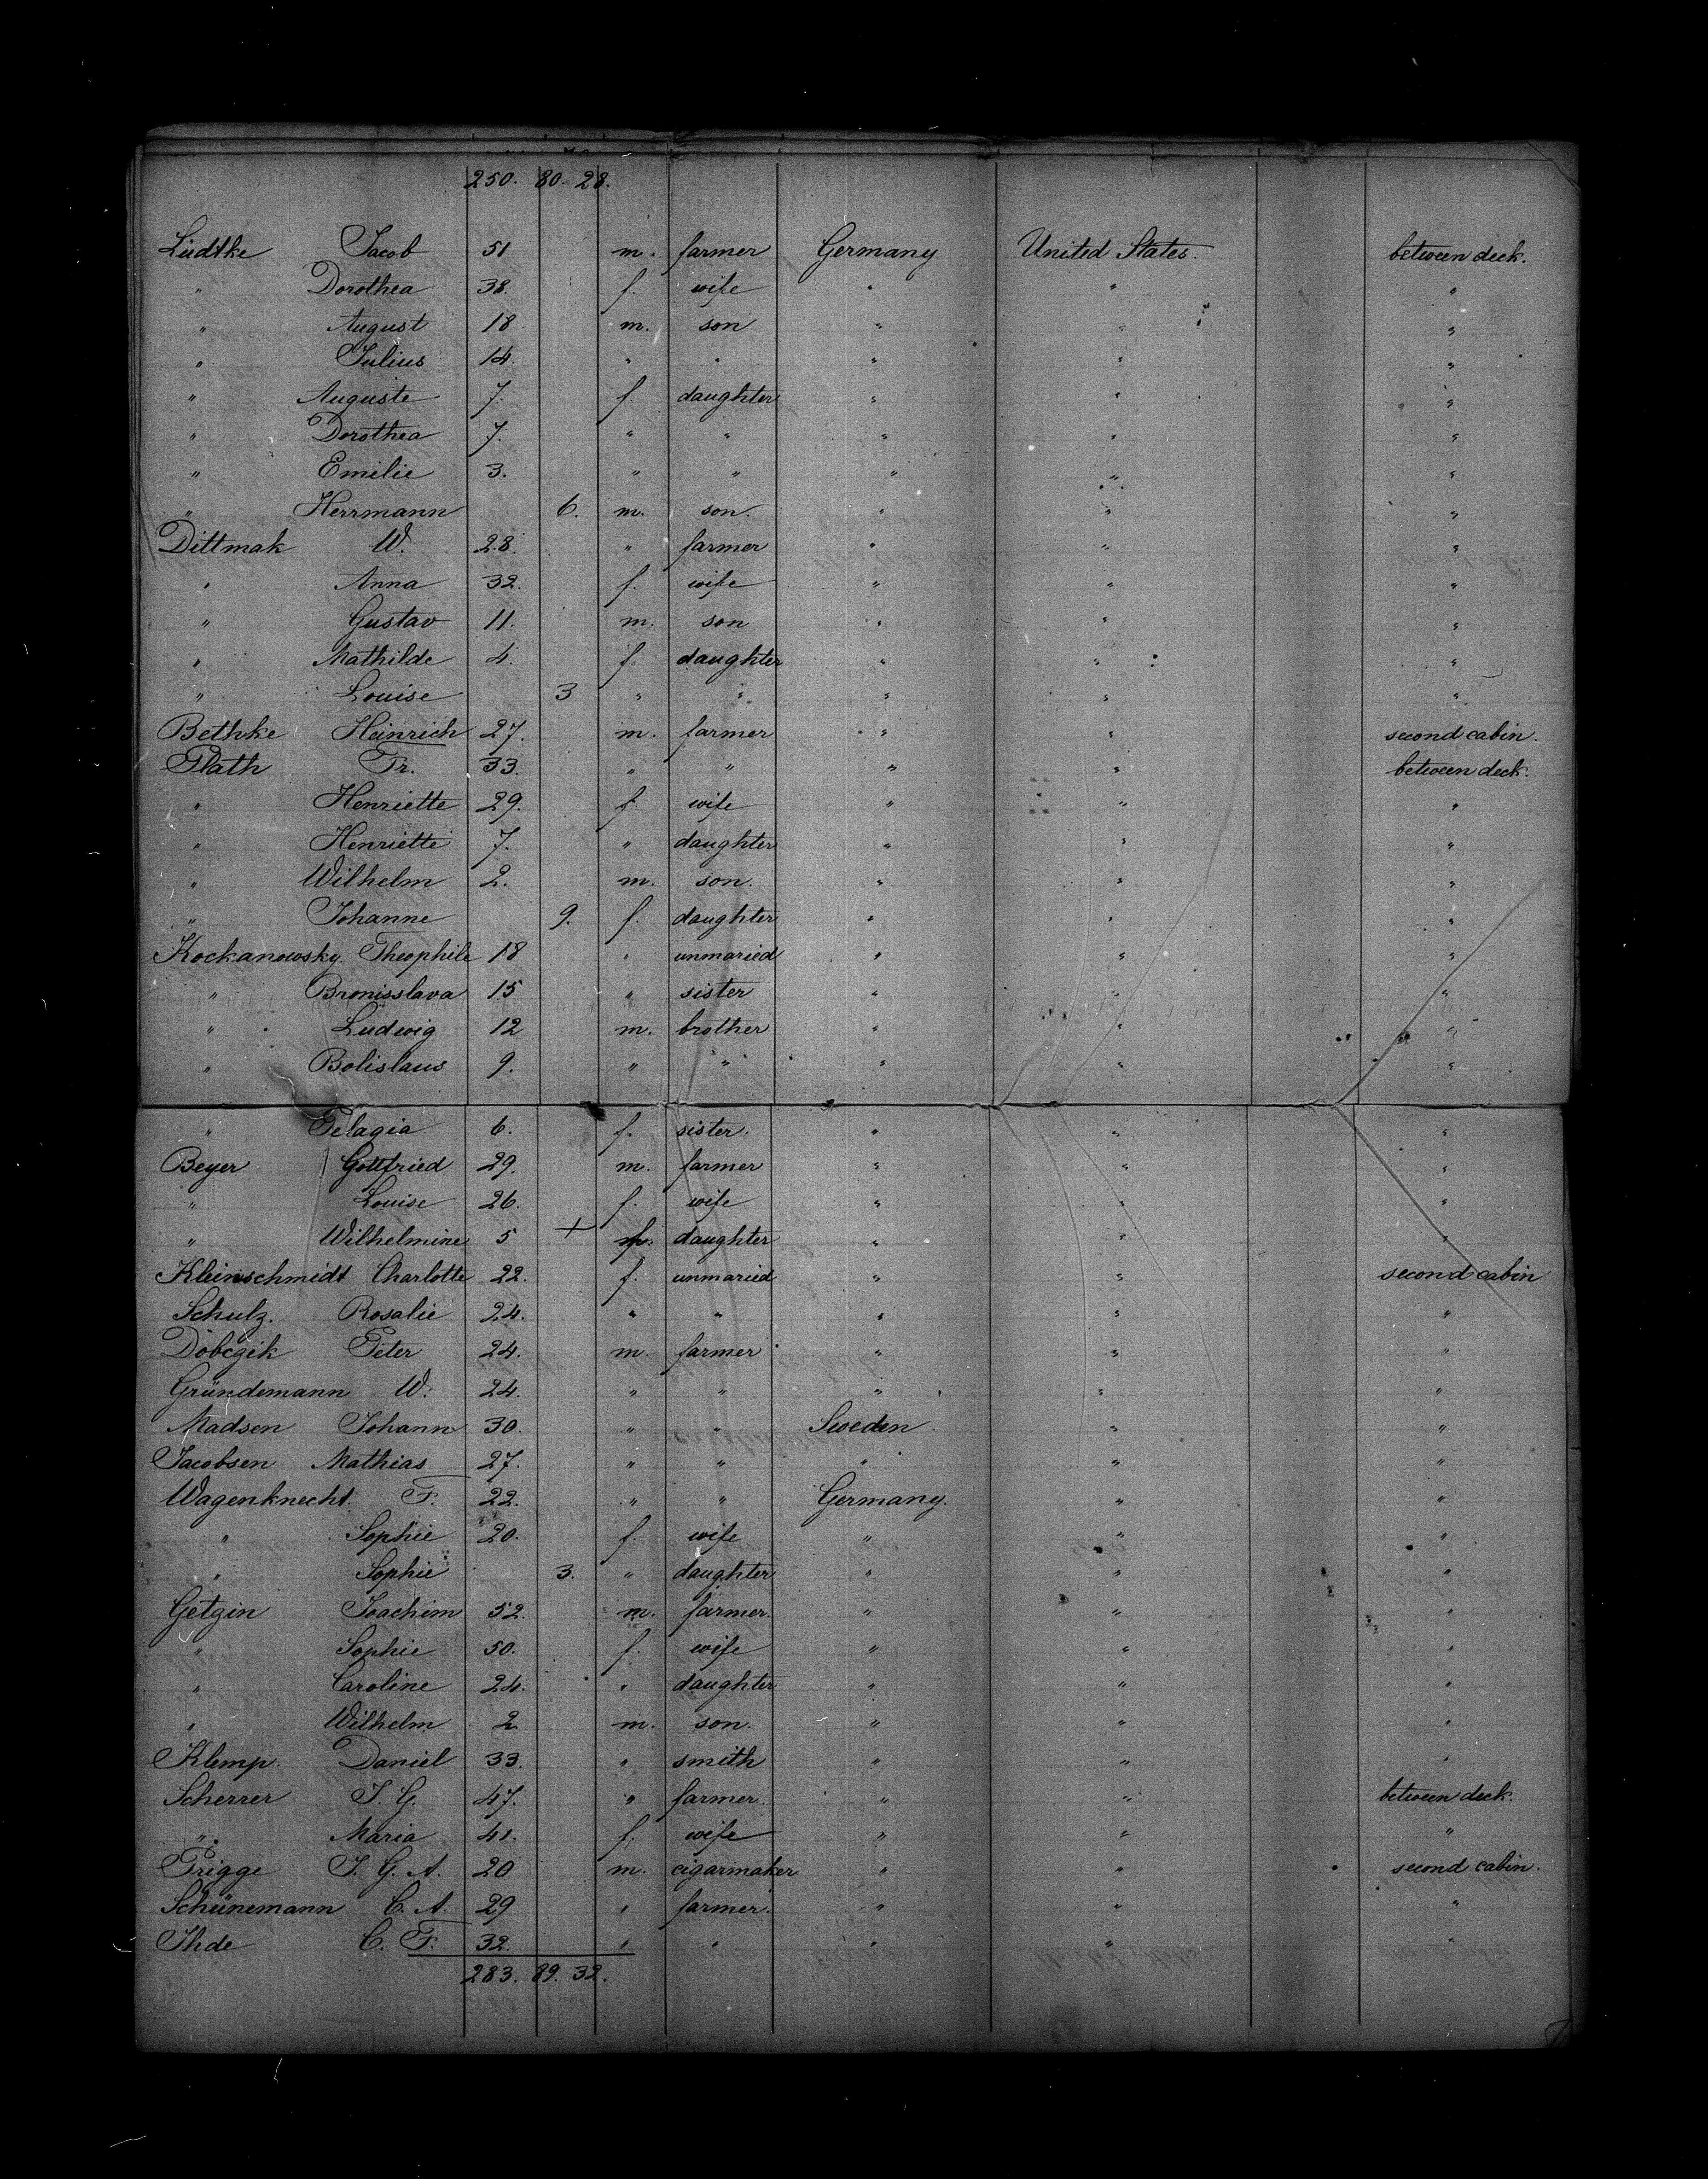 250. 80. 28.
Lüdtke Jacob 51 m. farmer Germany United States. between deck.
" Dorothea 38. f. wife " " "
" August 18 m. son " " "
" Julius 14. " " " " "
" Auguste 7. f. daughter " " "
" Dorothea 7. " " " " "
" Emilie 3. " " " " "
" Herrmann 6. m. son. " " "
Dittmak W. 28. " farmer " " "
" Anna 32. f. wife " " "
" Gustav 11. m. son " " "
" Mathilde 4. f. daughter " " "
" Louise 3 " " " " "
Bethke Heinrich 27. m. farmer " " second cabin.
Plath Fr. 33. " " " " between deck.
" Henriette 29. f. wife " " "
" Henriette 7. " daughter " " "
" Wilhelm 2. m. son. " " "
" Johanne 9. f. daughter " " "
Kockanowsky. Theophile 18 " unmaried " " "
" Bronisslava 15 " sister " " "
" Ludwig 12 m. brother " " "
" Bolislaus 9. " " " " "
" Pelagia 6. f. sister. " " "
Beyer Gottfried 29. m. farmer " " "
" Louise 26. f. wife " " "
" Wilhelmine 5 + f. daughter " " "
Kleinschmidt Charlotte 22. f. unmaried " " second cabin
Schulz. Rosalie 24. " " " " "
Döbczik Peter 24. m. farmer " " "
Gründemann W. 24. " " " " "
Madsen Johann 30. " " Sweden " "
Jacobsen Mathias 27. " " " " "
Wagenknecht. F. 22. " " Germany. " "
" Sophie 20. f. wife " " "
" Sophie 3. " daughter " " "
Getzin Joachim 52. m. farmer. " " "
" Sophie 50. f. wife " " "
" Caroline 24. " daughter " " "
" Wilhelm 2. m. son. " " "
Klemp. Daniel 33. " smith " " "
Scherrer J. G. 47. " farmer. " " between deck.
" Maria 41. f. wife " " "
Prigge J. G. A. 20 m. cigarmaker " " second cabin.
Schünemann C. A. 29 " farmer. " " "
Ihde C. F. 32. " " " " "
283. 89. 32.